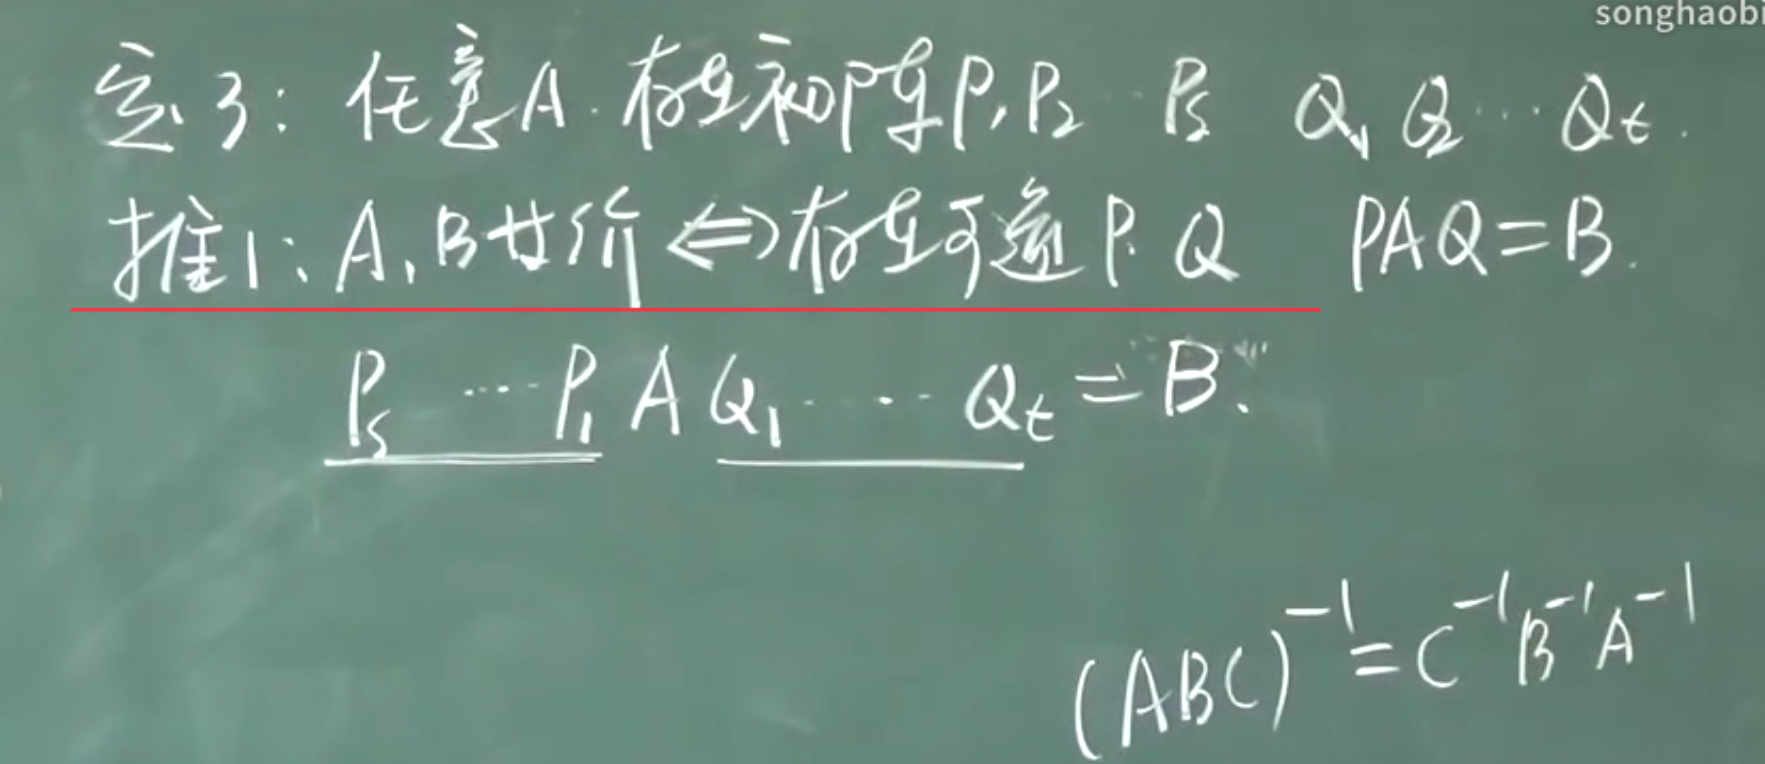 songhaobi
定3: 任意A. 存在初阵P₁P₂…Pₛ Q₁Q₂…Qₜ.
推1: A,B廿价⇔存在可逆P.Q PAQ=B.
Pₛ…P₁AQ₁……Qₜ=B.
(ABC)⁻¹=C⁻¹B⁻¹A⁻¹